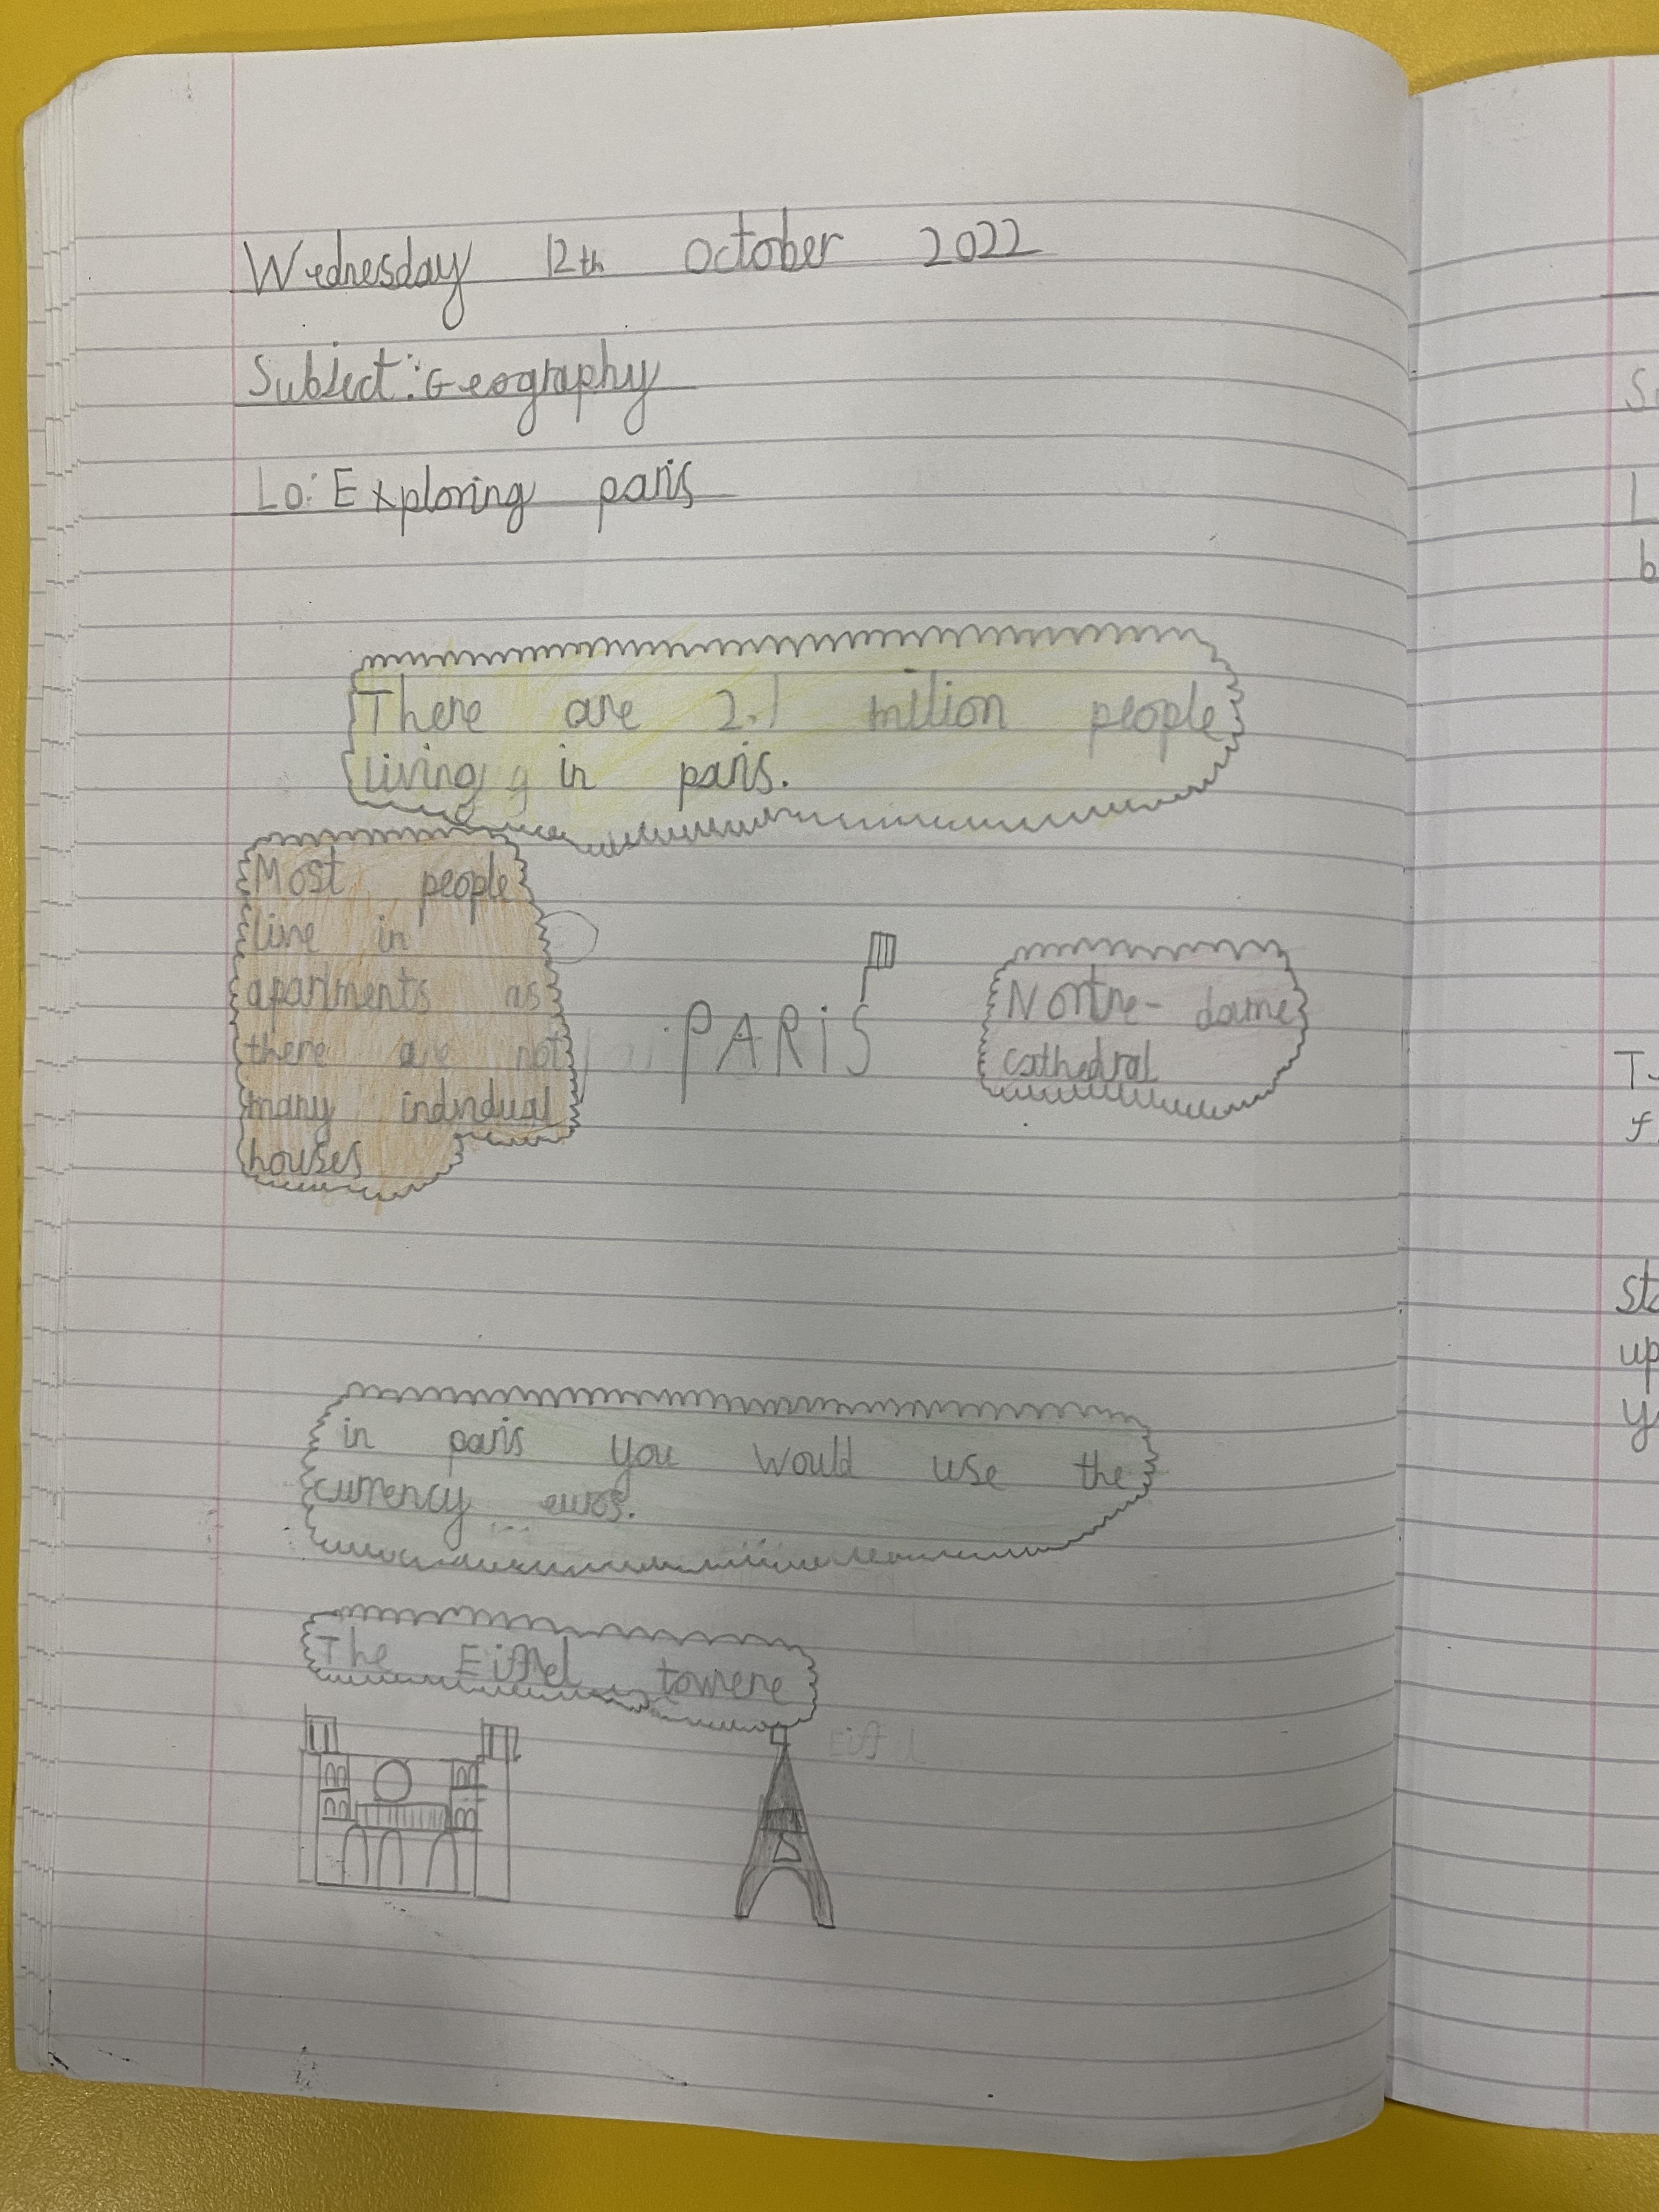 Wednesday 12th October 2022
Subject: Geography
Lo: Exploring paris
There are 2.1 million people
living in paris.
Most people
live in
apartments as
there are not
many individual
houses
PARiS
Nortre-dame
cathedral
in paris you would use the
currency euros.
The Eiffel towere
Eiff l
S
L
b
T
f
sta
up
y